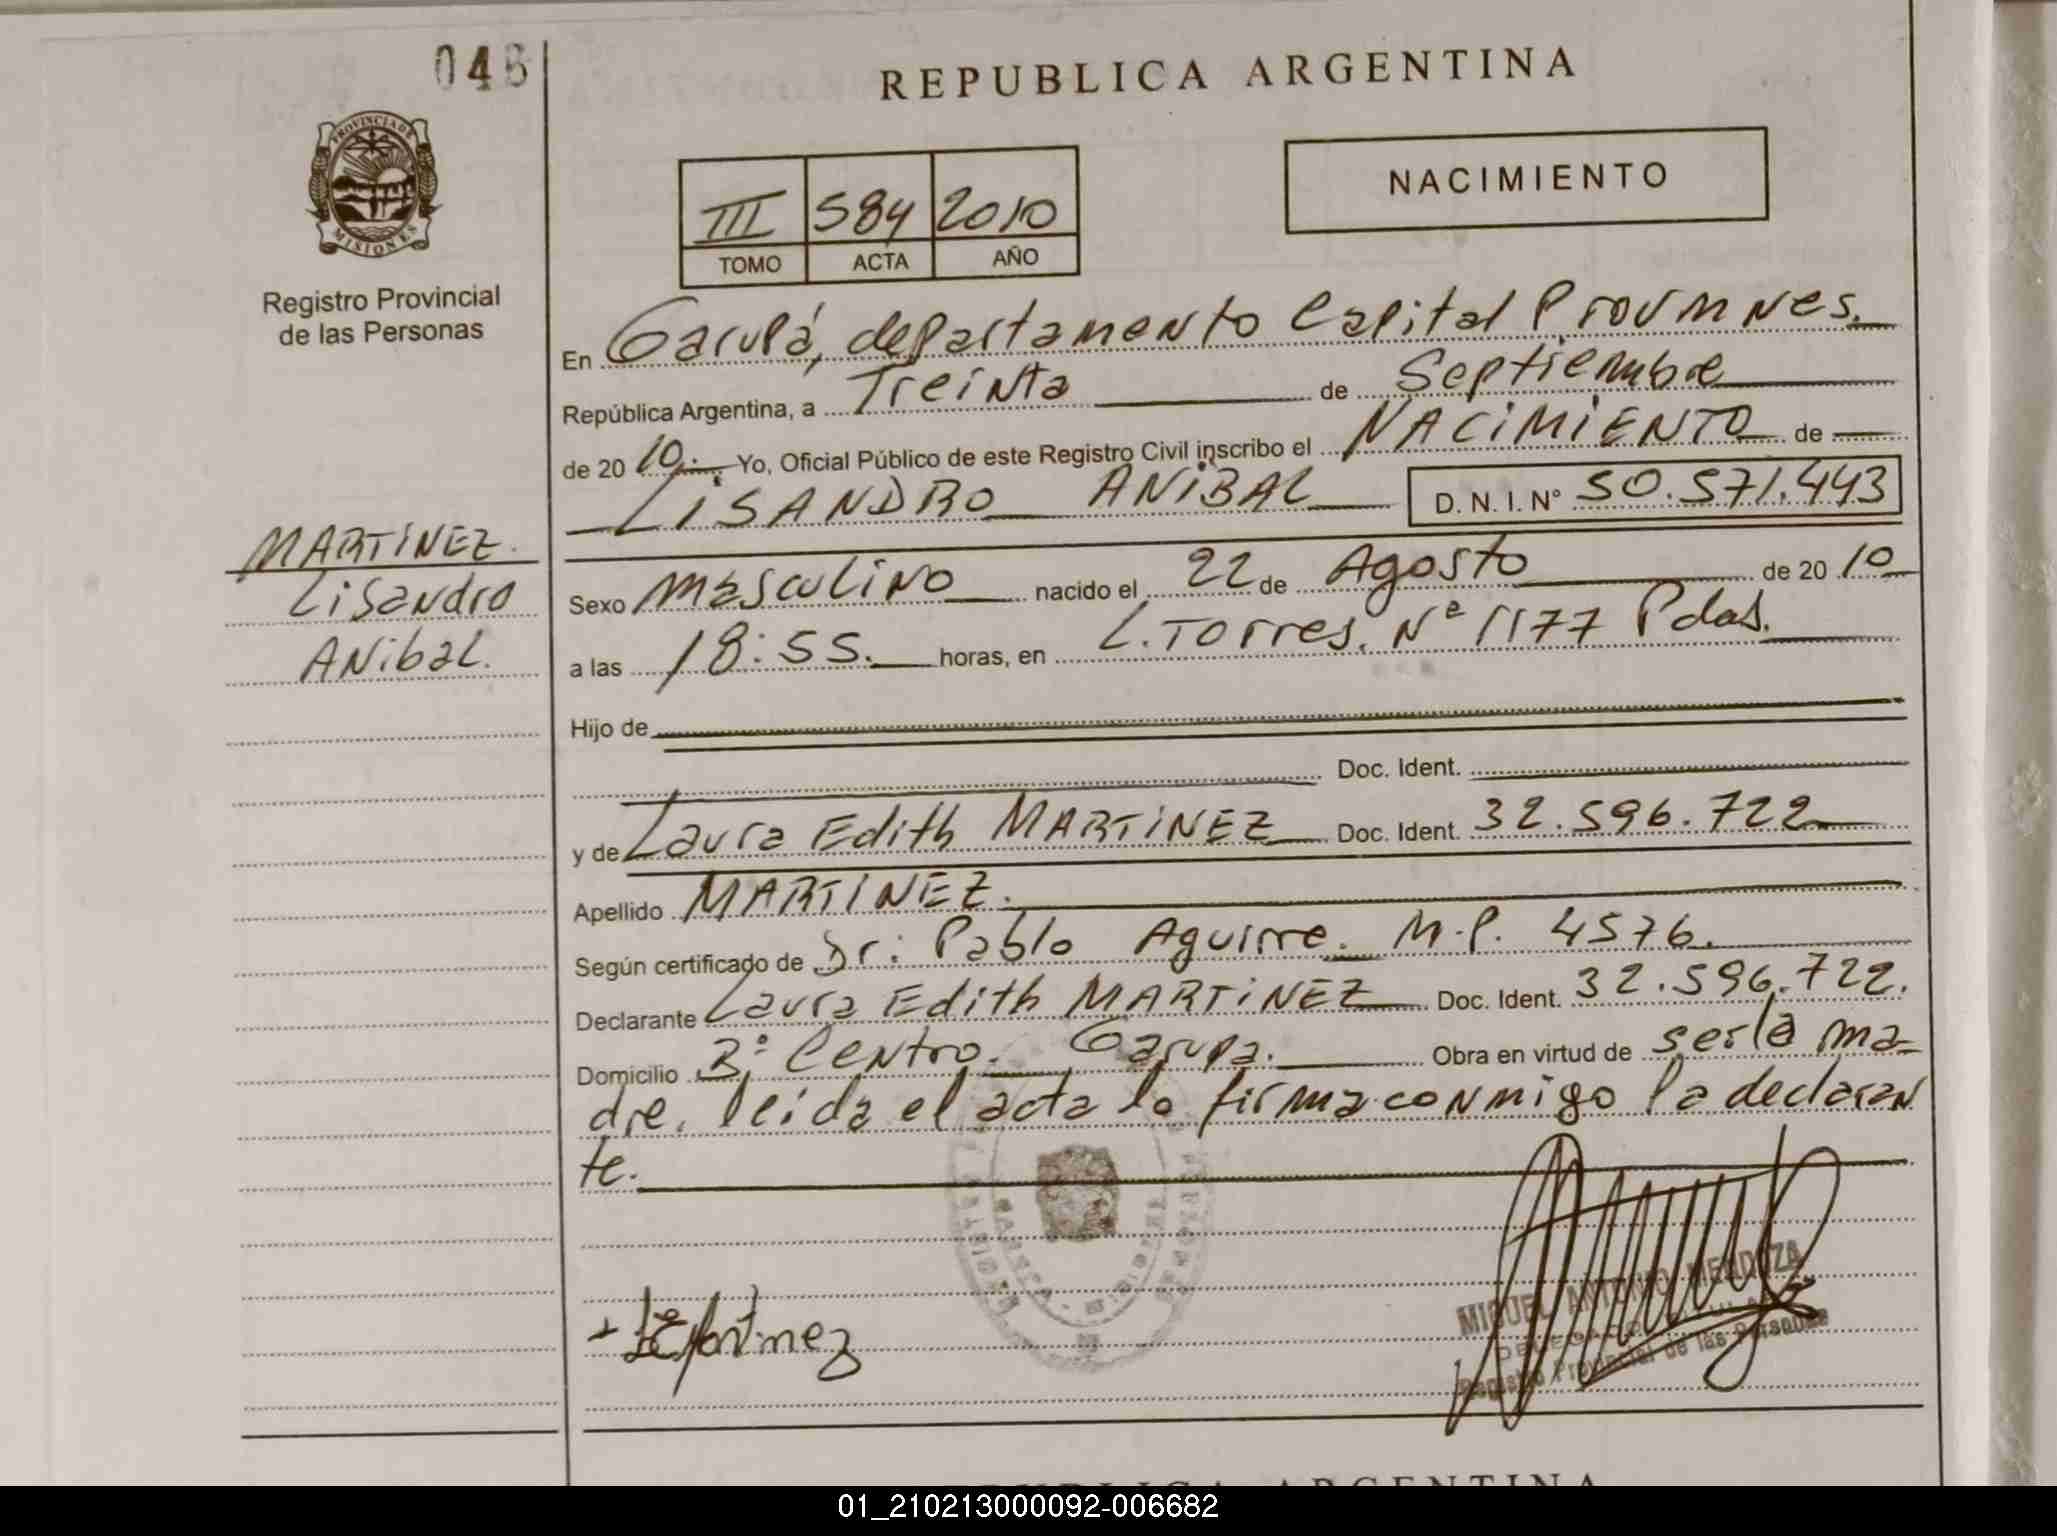 046
REPUBLICA ARGENTINA
PROVINCIA DE
MISIONES
Registro Provincial
de las Personas
NACIMIENTO
III 584 2010
TOMO ACTA AÑO
En Garupá, departamento Capital
República Argentina, a Treinta de Septiembre
de 20 10. Yo, Oficial Público de este Registro Civil inscribo el NACIMIENTO de
LISANDRO ANIBAL D.N.I.Nº 50.571.443
MARTINEZ.
Lisandro
Anibal.
Sexo masculino nacido el 22 de Agosto de 20 10
a las 18:55. horas, en L. Torres. Nº 1177 Pdas.
Hijo de
Doc. Ident.
y de Laura Edith MARTINEZ Doc. Ident. 32.596.722
Apellido MARTINEZ.
Según certificado de Dr: Pablo Aguirre. M.P. 4576.
Declarante Laura Edith MARTINEZ Doc. Ident. 32.596.722.
Domicilio Bº Centro. Garupa. Obra en virtud de ser la ma-
dre. leida el acta lo firma conmigo la declaran
te.
MIGUEL ANTONIO MENDOZA
DELEGADO
Registro Provincial de las Personas
Martinez
REPUBLICA ARGENTINA
01_210213000092-006682